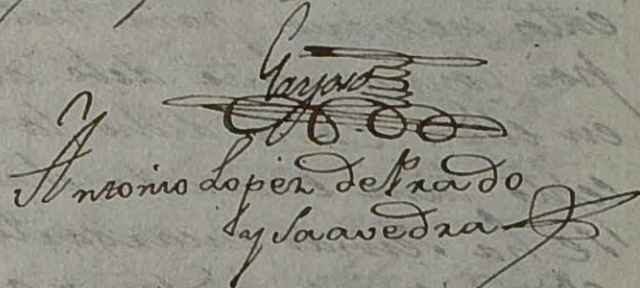 Gayoso
Antonio Lopez de Prado
y Saavedra